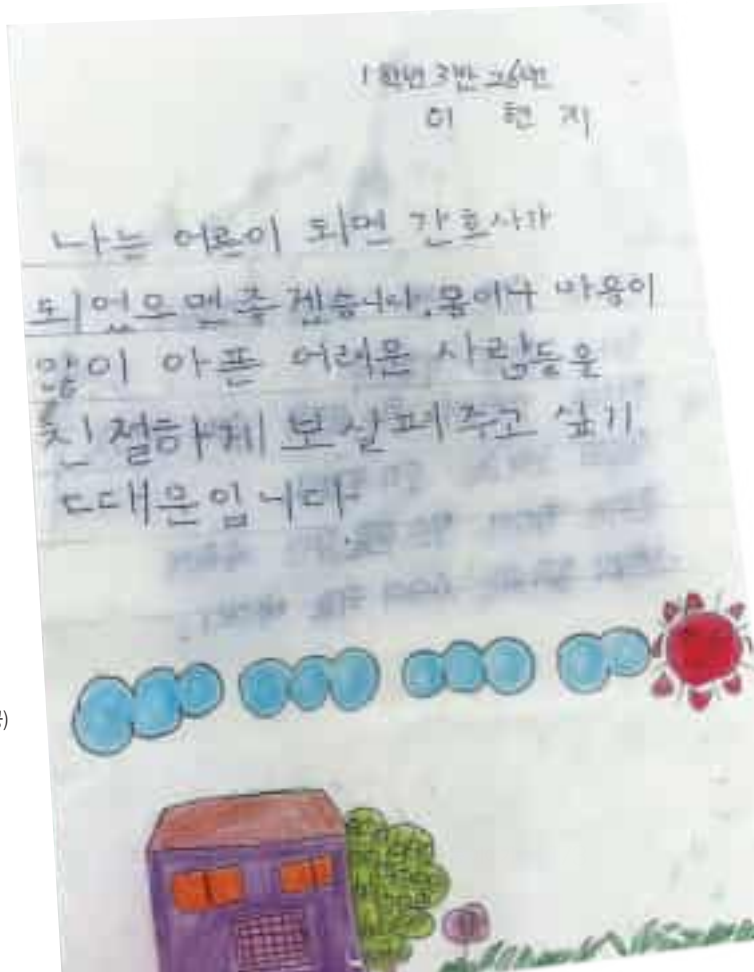 1학년 3반 26번
이 현 지
나는 어른이 되면 간호사가
되었으멘 좋겠습니다. 몸이나 마음이
많이 아픈 어려운 사람들을
친절하게 보살펴 주고 싶기
때문입니다.